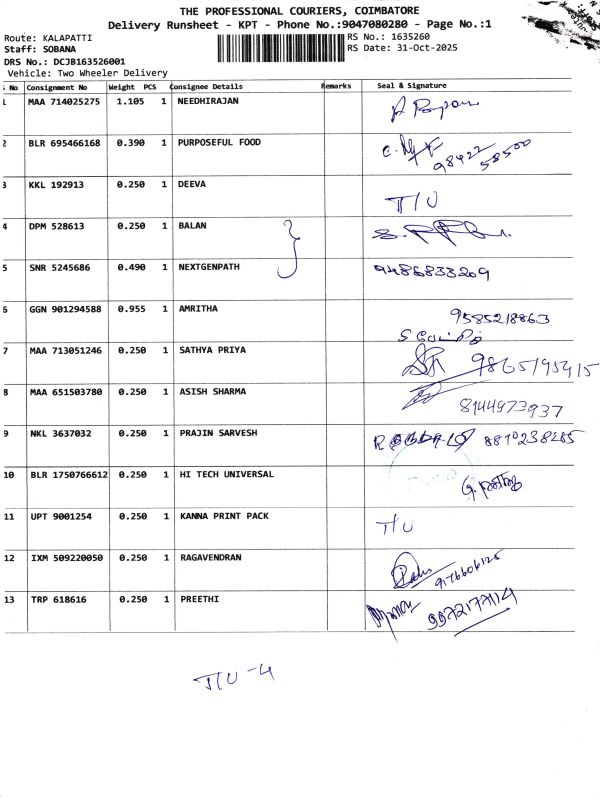 THE PROFESSIONAL COURIERS, COIMBATORE
Delivery Runsheet - KPT - Phone No.:9047080280 - Page No.:1
Route: KALAPATTI
RS No.: 1635260
Staff: SOBANA
RS Date: 31-Oct-2025
DRS No.: DCJB163526001
Vehicle: Two Wheeler Delivery
No Consignment No Weight PCS Consignee Details Remarks Seal & Signature
1 MAA 714025275 1.105 1 NEEDHIRAJAN
2 BLR 695466168 0.390 1 PURPOSEFUL FOOD 98422 58500
3 KKL 192913 0.250 1 DEEVA T/U
4 DPM 528613 0.250 1 BALAN
5 SNR 5245686 0.490 1 NEXTGENPATH 9486833209
6 GGN 901294588 0.955 1 AMRITHA 9585218863
7 MAA 713051246 0.250 1 SATHYA PRIYA 9865195415
8 MAA 651503780 0.250 1 ASISH SHARMA 8144973937
9 NKL 3637032 0.250 1 PRAJIN SARVESH
10 BLR 1750766612 0.250 1 HI TECH UNIVERSAL
11 UPT 9001254 0.250 1 KANNA PRINT PACK T/U
12 IXM 509220050 0.250 1 RAGAVENDRAN 9176606125
13 TRP 618616 0.250 1 PREETHI
T/U -4